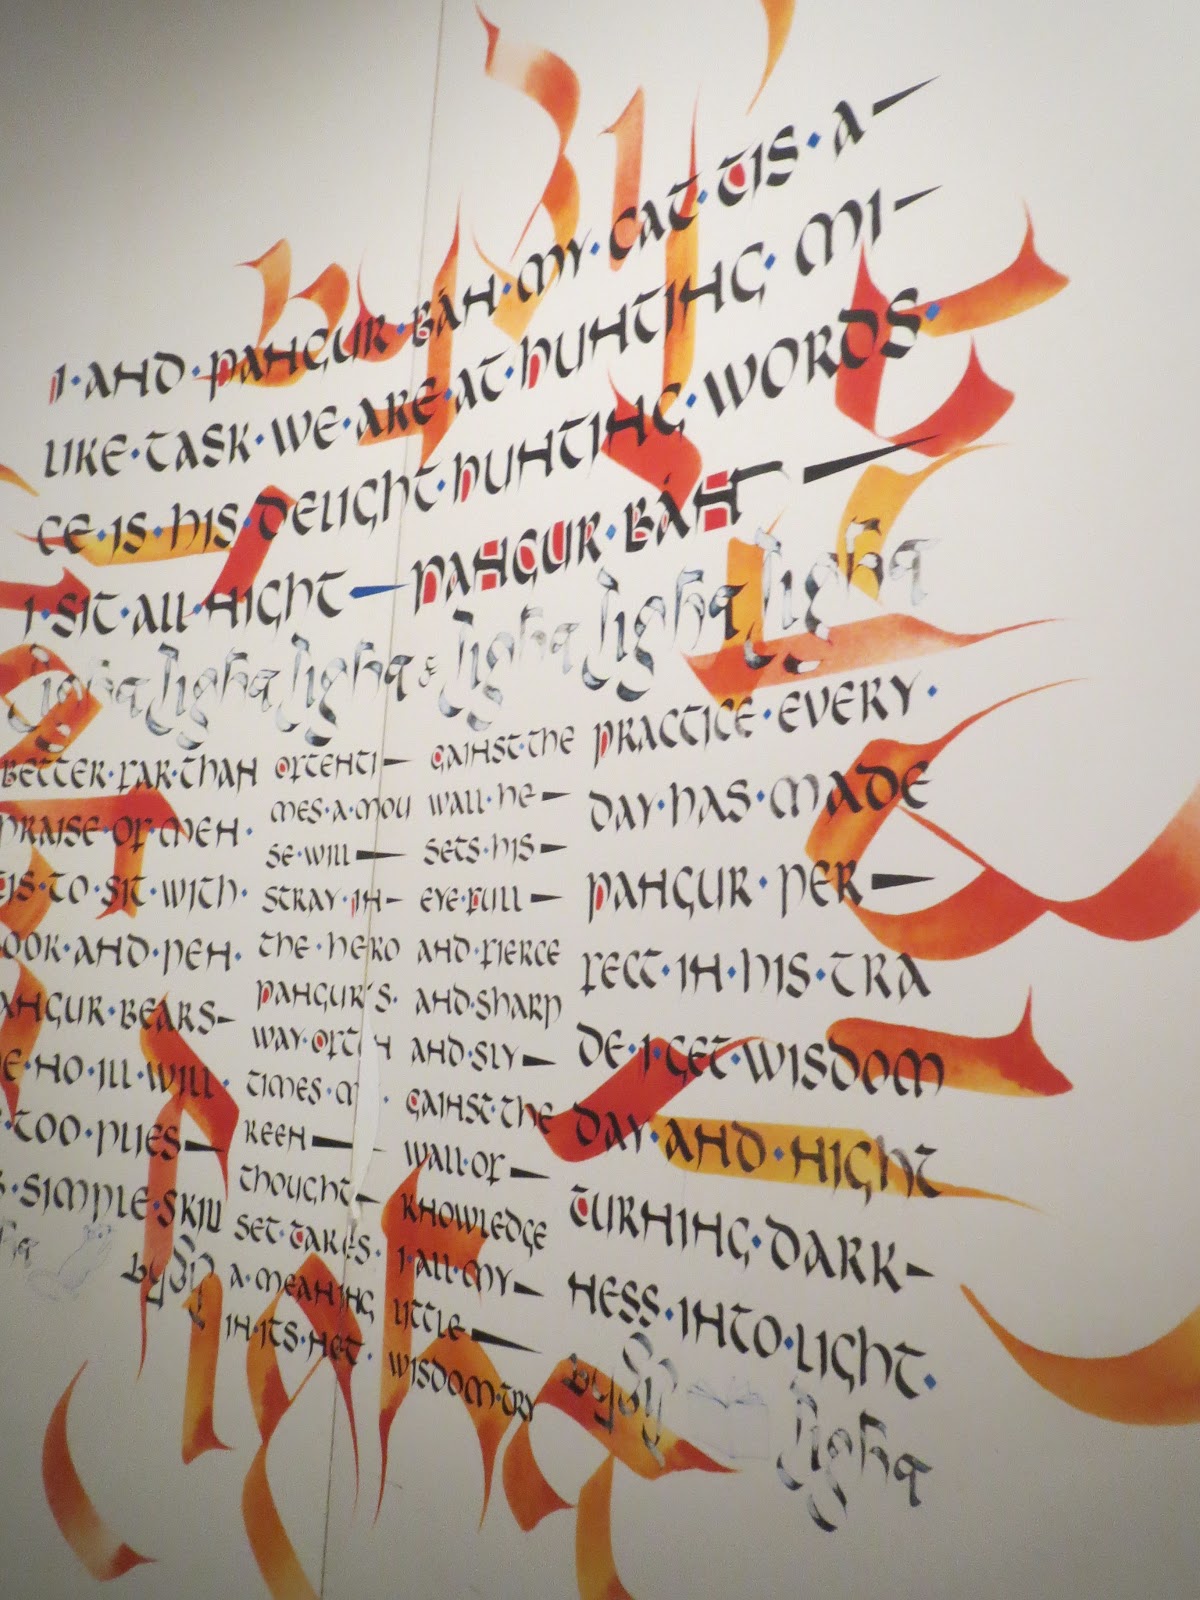 I·AND·PANGUR·BÁN·MY·CAT·TIS·A—
LIKE·TASK·WE·ARE·AT·HUNTING·MI—
CE·IS·HIS·DELIGHT·HUNTING·WORDS·
I·SIT·ALL·NIGHT—PANGUR·BÁN—
BETTER·FAR·THAN
PRAISE·OF·MEN·
TIS·TO·SIT·WITH·
OOK·AND·PEN·
ANGUR·BEARS—
E·NO·ILL·WILL·
TOO·PLIES—
S·SIMPLE·SKILL
OFTENTI—
MES·A·MOU
SE·WILL—
STRAY·IN—
THE·HERO
PANGUR'S·
WAY·OFTEN
TIMES·M
KEEN—
THOUGHT—
SET·TAKES·
A·MEANING
IN·ITS·NET·
GAINST·THE
WALL·HE—
SETS·HIS—
EYE·FULL—
AND·FIERCE
AND·SHARP
AND·SLY—
GAINST·THE
WALL·OF—
KNOWLEDGE
I·ALL·MY—
LITTLE—
WISDOM·TRY
PRACTICE·EVERY·
DAY·HAS·MADE
PANGUR·PER—
FECT·IN·HIS·TRA
DE·I·GET·WISDOM
DAY·AND·NIGHT
TURNING·DARK—
NESS·INTO·LIGHT·